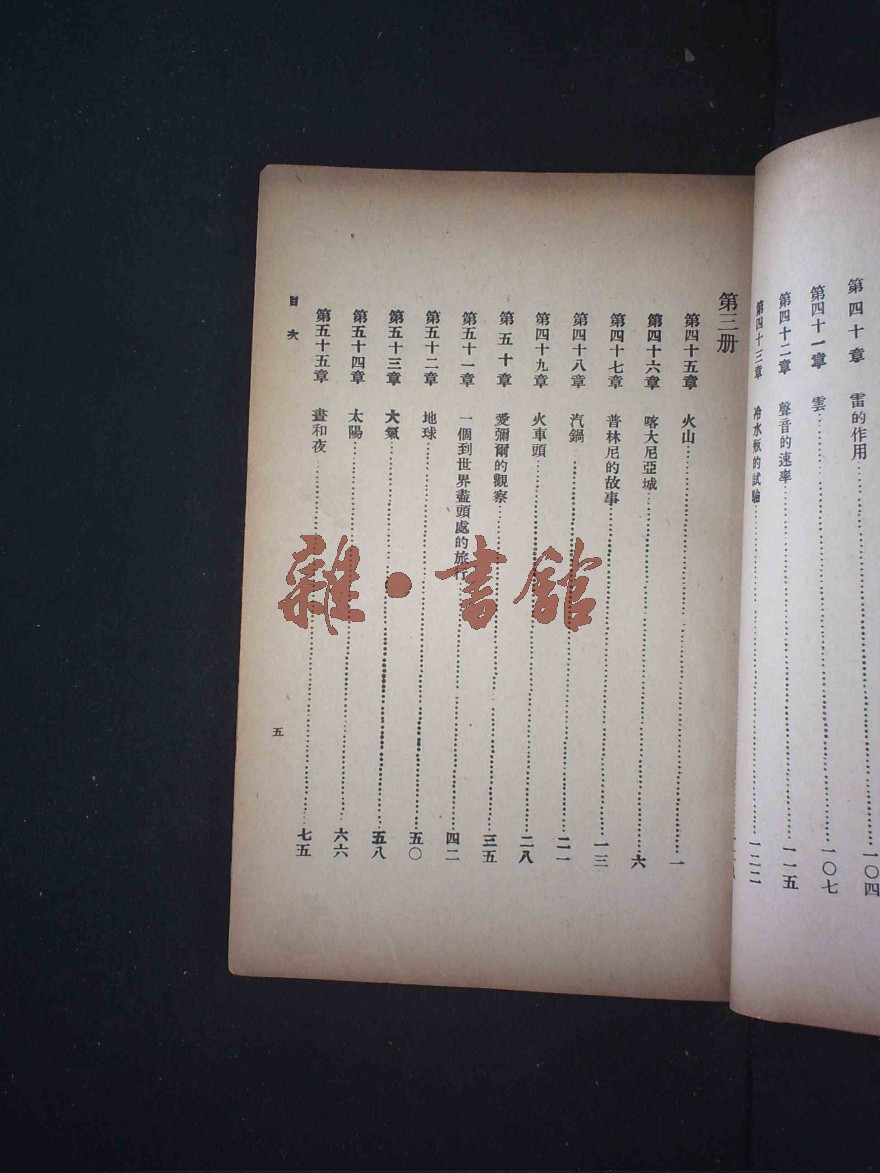 第四十章　雷的作用……一〇四
第四十一章　雲……一〇七
第四十二章　聲音的速率……一一五
第四十三章　冷水瓶的試驗……一二二
第三册
第四十五章　火山……一
第四十六章　喀大尼亞城……六
第四十七章　普林尼的故事……一三
第四十八章　汽鍋……二一
第四十九章　火車頭……二八
第五十章　愛彌爾的觀察……三五
第五十一章　一個到世界盡頭處的旅行……四二
第五十二章　地球……五〇
第五十三章　大氣……五八
第五十四章　太陽……六六
第五十五章　晝和夜……七五
目次
五
雜·書館